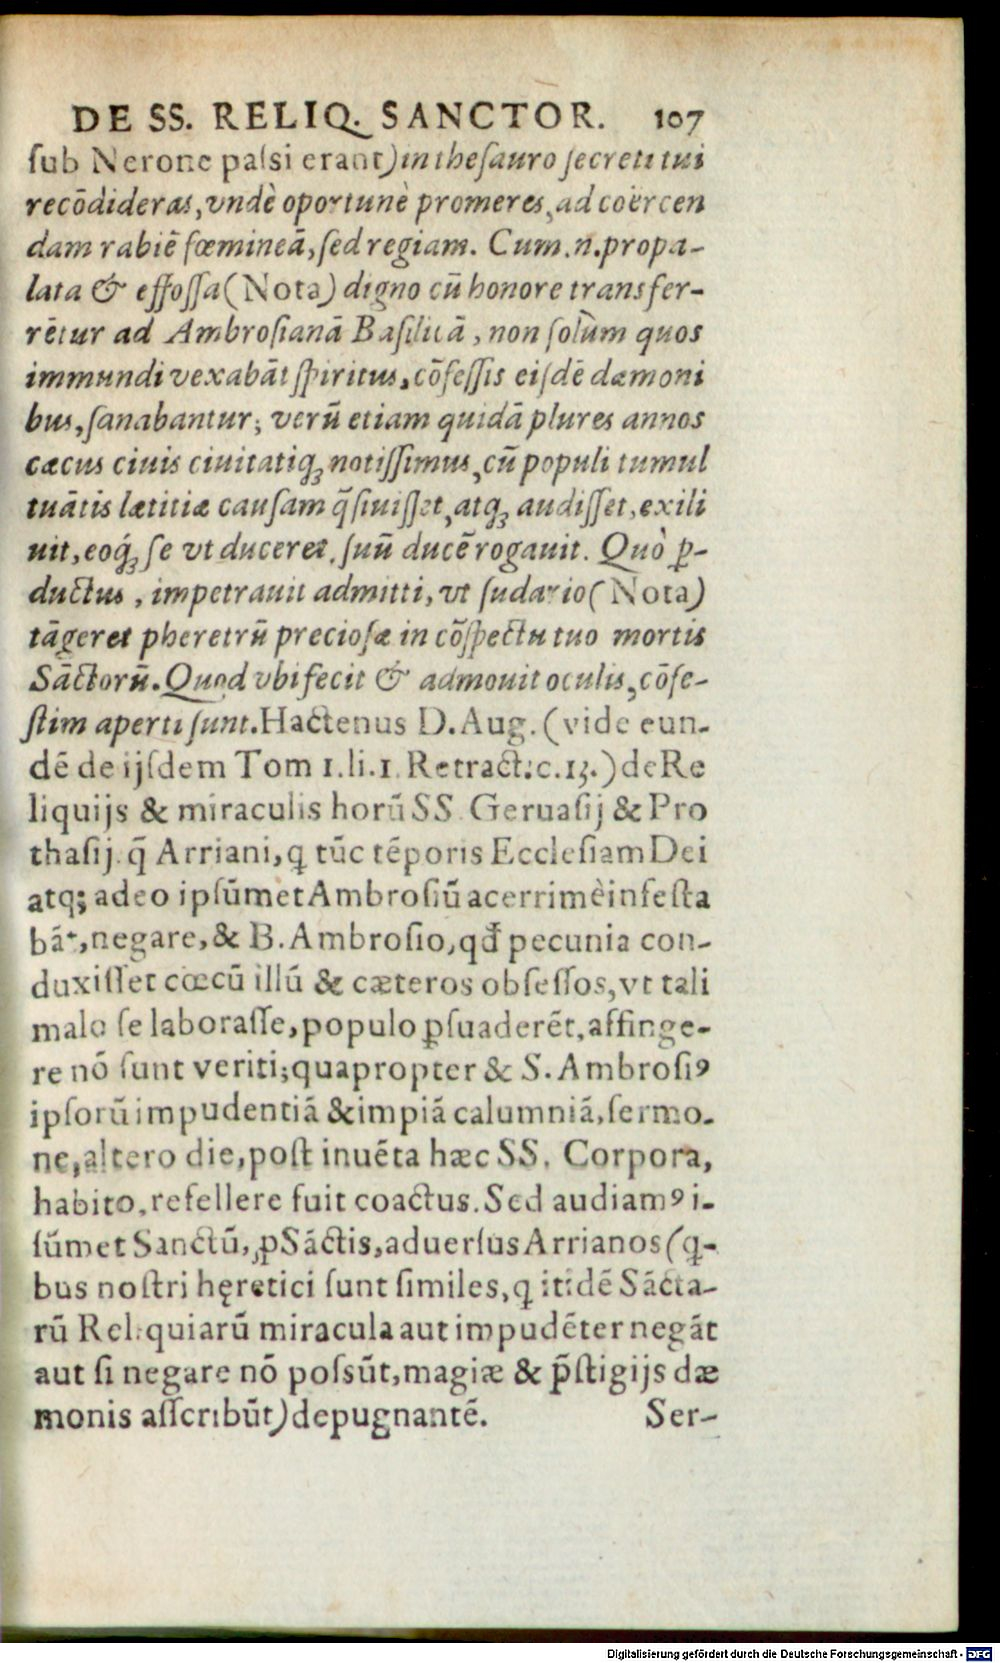 DE SS. RELIQ. SANCTOR. 107
ſub Nerone paſsi erant) in theſauro ſecreti tui
recōdideras, vndè oportunè promeres, ad coërcen
dam rabiē fœmineā, ſed regiam. Cum .n. propa-
lata & effoſſa (Nota) digno cū honore transfer-
rētur ad Ambroſianā Baſilicā, non ſolùm quos
immundi vexabāt ſpiritus, cōfeſſis eiſdē dæmoni
bus, ſanabantur; verū etiam quidā plures annos
cæcus ciuis ciuitatiq́ꝫ notiſſimus, cū populi tumul
tuātis lætitiæ cauſam q̄ſiuiſſet, atqꝫ audiſſet, exili
uit, eoq́ꝫ ſe vt duceret, ſuū ducē rogauit. Quò ꝑ-
ductus, impetrauit admitti, vt ſudario (Nota)
tāgeret pheretrū precioſæ in cōſpectu tuo mortis
Sāctorū. Quod vbi fecit & admouit oculis, cōfe-
ſtim aperti ſunt. Hactenus D. Aug. (vide eun-
dē de ijſdem Tom 1. li. 1. Retract: c. 13.) de Re
liquijs & miraculis horū SS. Geruaſij & Pro
thaſij. q̄ Arriani, ꝗ tūc tēporis Eccleſiam Dei
atq; adeo ipſūmet Ambroſiū acerrimè infeſta
bāt, negare, & B. Ambroſio, qđ pecunia con-
duxiſſet cœcū illū & cæteros obſeſſos, vt tali
malo ſe laboraſſe, populo ꝑſuaderēt, affinge-
re nō ſunt veriti; quapropter & S. Ambroſiꝰ
ipſorū impudentiā & impiā calumniā, ſermo-
ne, altero die, poſt inuēta hæc SS. Corpora,
habito, refellere fuit coactus. Sed audiamꝰ i-
ſūmet Sanctū, ꝓ Sāctis, aduerſus Arrianos (ꝗ-
bus noſtri hęretici ſunt ſimiles, ꝗ itidē Sācta-
rū Reliquiarū miracula aut impudēter negāt
aut ſi negare nō poſsūt, magiæ & p̄ſtigijs dæ
monis aſſcribūt) depugnantē. Ser-
Digitalisierung gefördert durch die Deutsche Forschungsgemeinschaft - DFG